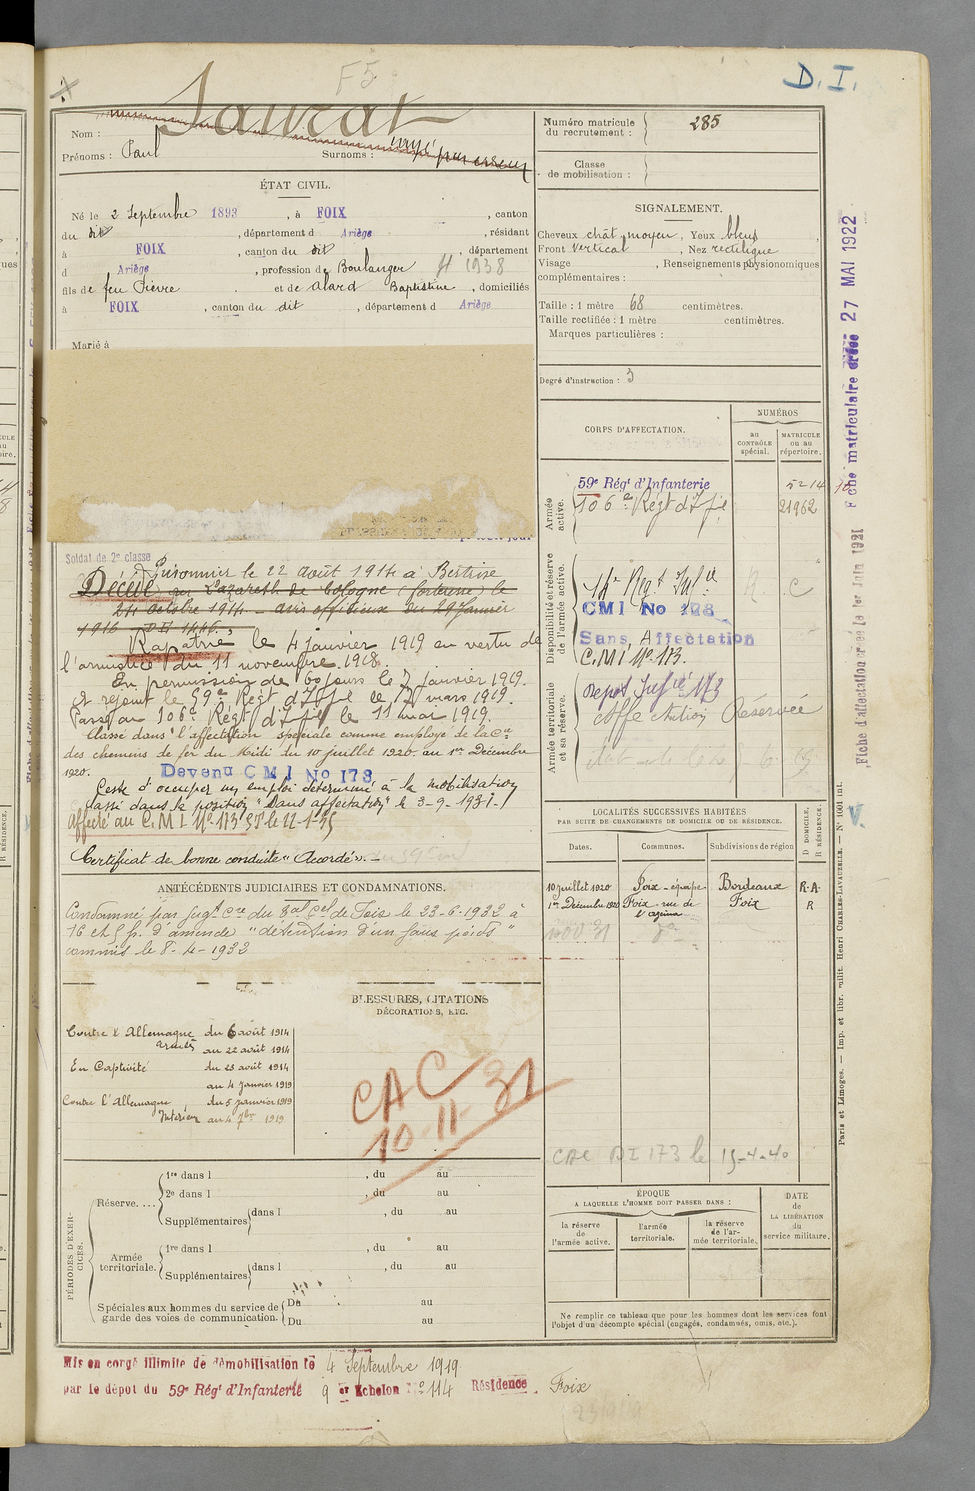 F5
D. I.
Nom : Laurat
Prénoms : Paul Surnoms : rayé par erreur
Numéro matricule du recrutement : 285
Classe de mobilisation :
ÉTAT CIVIL.
Né le 2 Septembre 1893, à FOIX, canton
du dit, département d Ariège, résidant
à FOIX, canton du dit, département
d Ariège, profession de Boulanger H 1938
fils de feu Pierre et de Alard Baptistine, domiciliés
à FOIX, canton du dit, département d Ariège
Marié à
SIGNALEMENT.
Cheveux chât moyen, Yeux bleus,
Front vertical, Nez rectiligne
Visage , Renseignements physionomiques
complémentaires :
Taille : 1 mètre 68 centimètres.
Taille rectifiée : 1 mètre centimètres.
Marques particulières :
Degré d'instruction : 3
CORPS D'AFFECTATION.
NUMÉROS
au CONTRÔLE spécial.
MATRICULE ou au répertoire.
Armée active.
59e Régt d'Infanterie 5214
106e Régt d'Infie 21962
Disponibilité et réserve de l'armée active.
CMI No 128
Sans Affectation
C.M.I. No 173.
Armée territoriale et sa réserve.
Dépôt Infie 173
Affectation Réservée
Soldat de 2e classe
Prisonnier le 22 août 1914 à Bertrix
Décédé au Lazareth de Cologne (forteresse) le
24 octobre 1914 - avis officieux du 29 Janvier
1916
Rapatrié le 4 janvier 1919 en vertu de
l'armistice du 11 novembre 1918.
En permission de 60 jours le 7 janvier 1919.
A rejoint le 59e Régt d'Infie le 12 mars 1919.
Passé au 106e Régt d'Infie le 11 mai 1919.
Classé dans l'affectation spéciale comme employé de la Cie
des chemins de fer du Midi du 10 juillet 1920 au 1er Décembre
1920. Devenu CMI No 173
Cesse d'occuper un emploi déterminé à la mobilisation
classé dans la position "Sans affectation" le 3-9-1931
Affecté au C.M.I. No 173
Certificat de bonne conduite "Accordé".
ANTÉCÉDENTS JUDICIAIRES ET CONDAMNATIONS.
Condamné par Jugt Cre du Bal Cel de Foix le 23-6-1932 à
16 et 5 f. d'amende "détention d'un faux poids"
commis le 8-4-1932
BLESSURES, CITATIONS
DÉCORATIONS, ETC.
Contre l'Allemagne du 6 août 1914
armées au 22 août 1914
En Captivité du 23 août 1914
au 4 janvier 1919
Contre l'Allemagne du 5 janvier 1919
Intérieur au 4 7bre 1919
CAC
10-11-31
LOCALITÉS SUCCESSIVES HABITÉES
PAR SUITE DE CHANGEMENTS DE DOMICILE OU DE RÉSIDENCE.
Dates. Communes. Subdivisions de région
D DOMICILE, R RÉSIDENCE.
10 juillet 1920 Foix - équipe Bordeaux R.A.
1er Décembre 1920 Foix - rue de Foix R
CAC DI 173 le 15-4-40
PÉRIODES D'EXERCICES.
Réserve.... 1re dans l , du au
2e dans l , du au
Supplémentaires dans l , du au
Armée territoriale. 1re dans l , du au
Supplémentaires dans l , du au
Spéciales aux hommes du service de garde des voies de communication.
Du au
Du au
ÉPOQUE
A LAQUELLE L'HOMME DOIT PASSER DANS :
la réserve de l'armée active.
l'armée territoriale.
la réserve de l'armée territoriale.
DATE de LA LIBÉRATION du service militaire.
Ne remplir ce tableau que pour les hommes dont les services font
l'objet d'un décompte spécial (engagés, condamnés, omis, etc.).
Mis en congé illimité de démobilisation le 4 Septembre 1919
par le dépôt du 59e Régt d'Infanterie 9 er Echelon No 114 Résidence. Foix
Fiche matriculaire créée 27 MAI 1922
Fiche d'affectation créée le 1er Juin 1921
V.
Paris et Limoges. — Imp. et libr. milit. Henri CHARLES-LAVAUZELLE. — N° 1001 int.